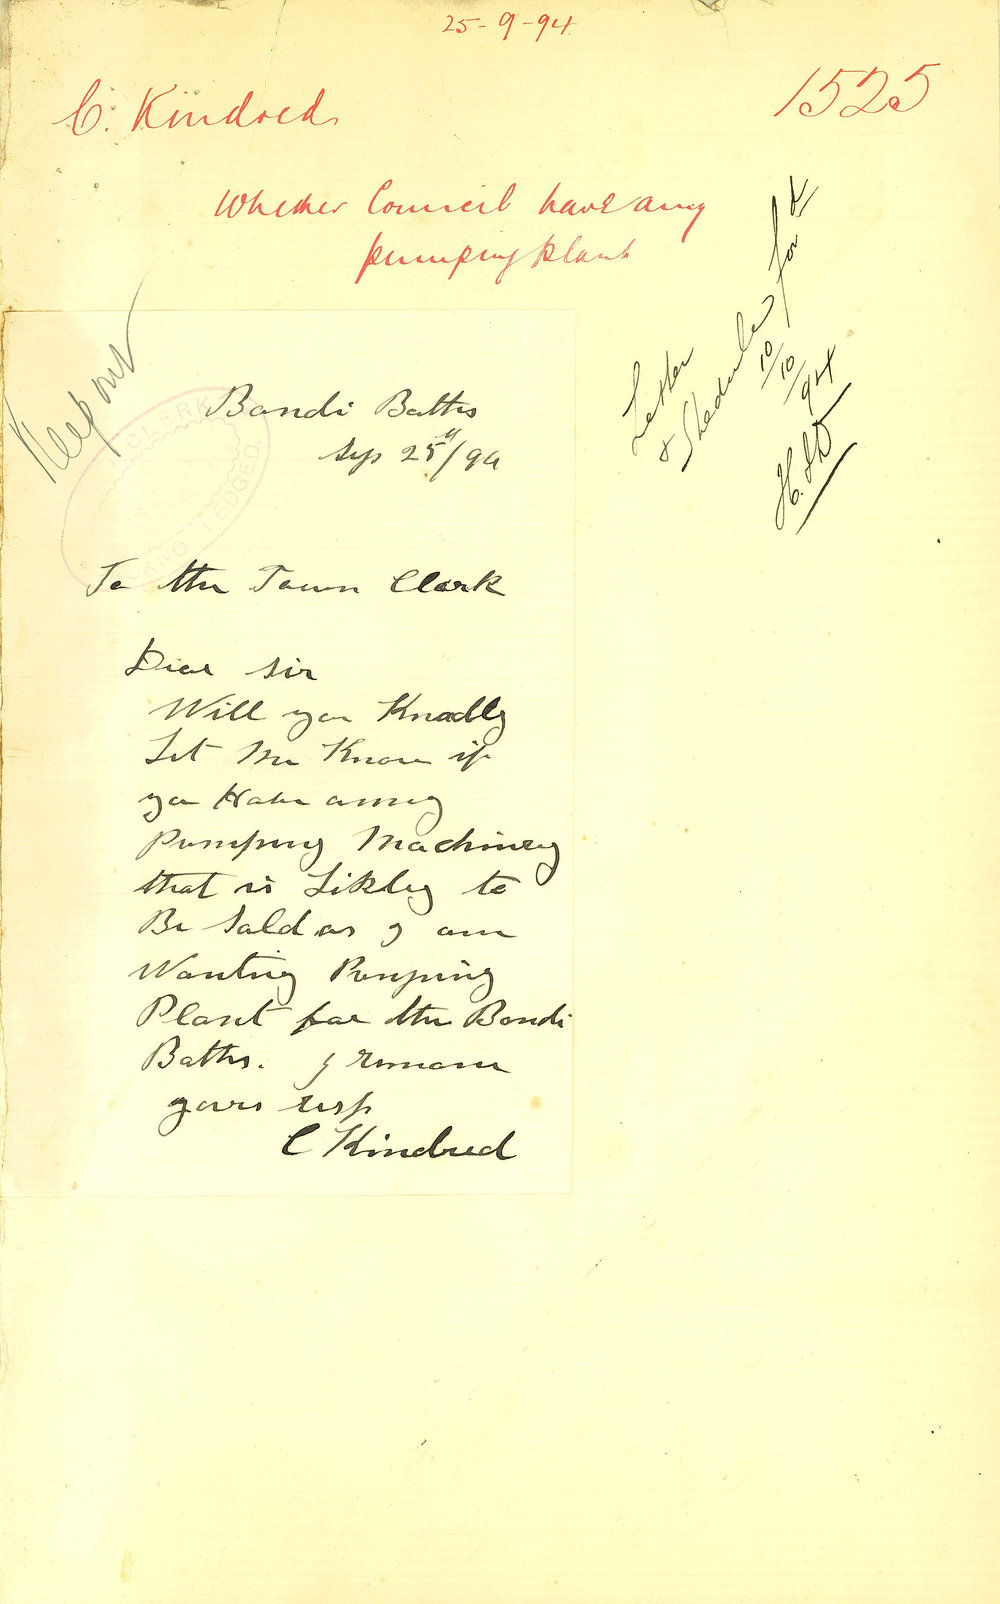 25-9-94
C. Kindred
1525
Whether Council have any
pumping plant
Keep out
Letter
& Shedule for
10/10/94
CLERK
ACKNOWLEDGED
Bondi Baths
Sep 25th/94
To the Town Clerk
Dear Sir
Will you Knadly
Let Me Know if
you Have anney
Pumping Machinery
that is Likley to
Be Sold as I am
Wanting Pumping
Plant for the Bondi
Baths. I remain
yours resp
C Kindred